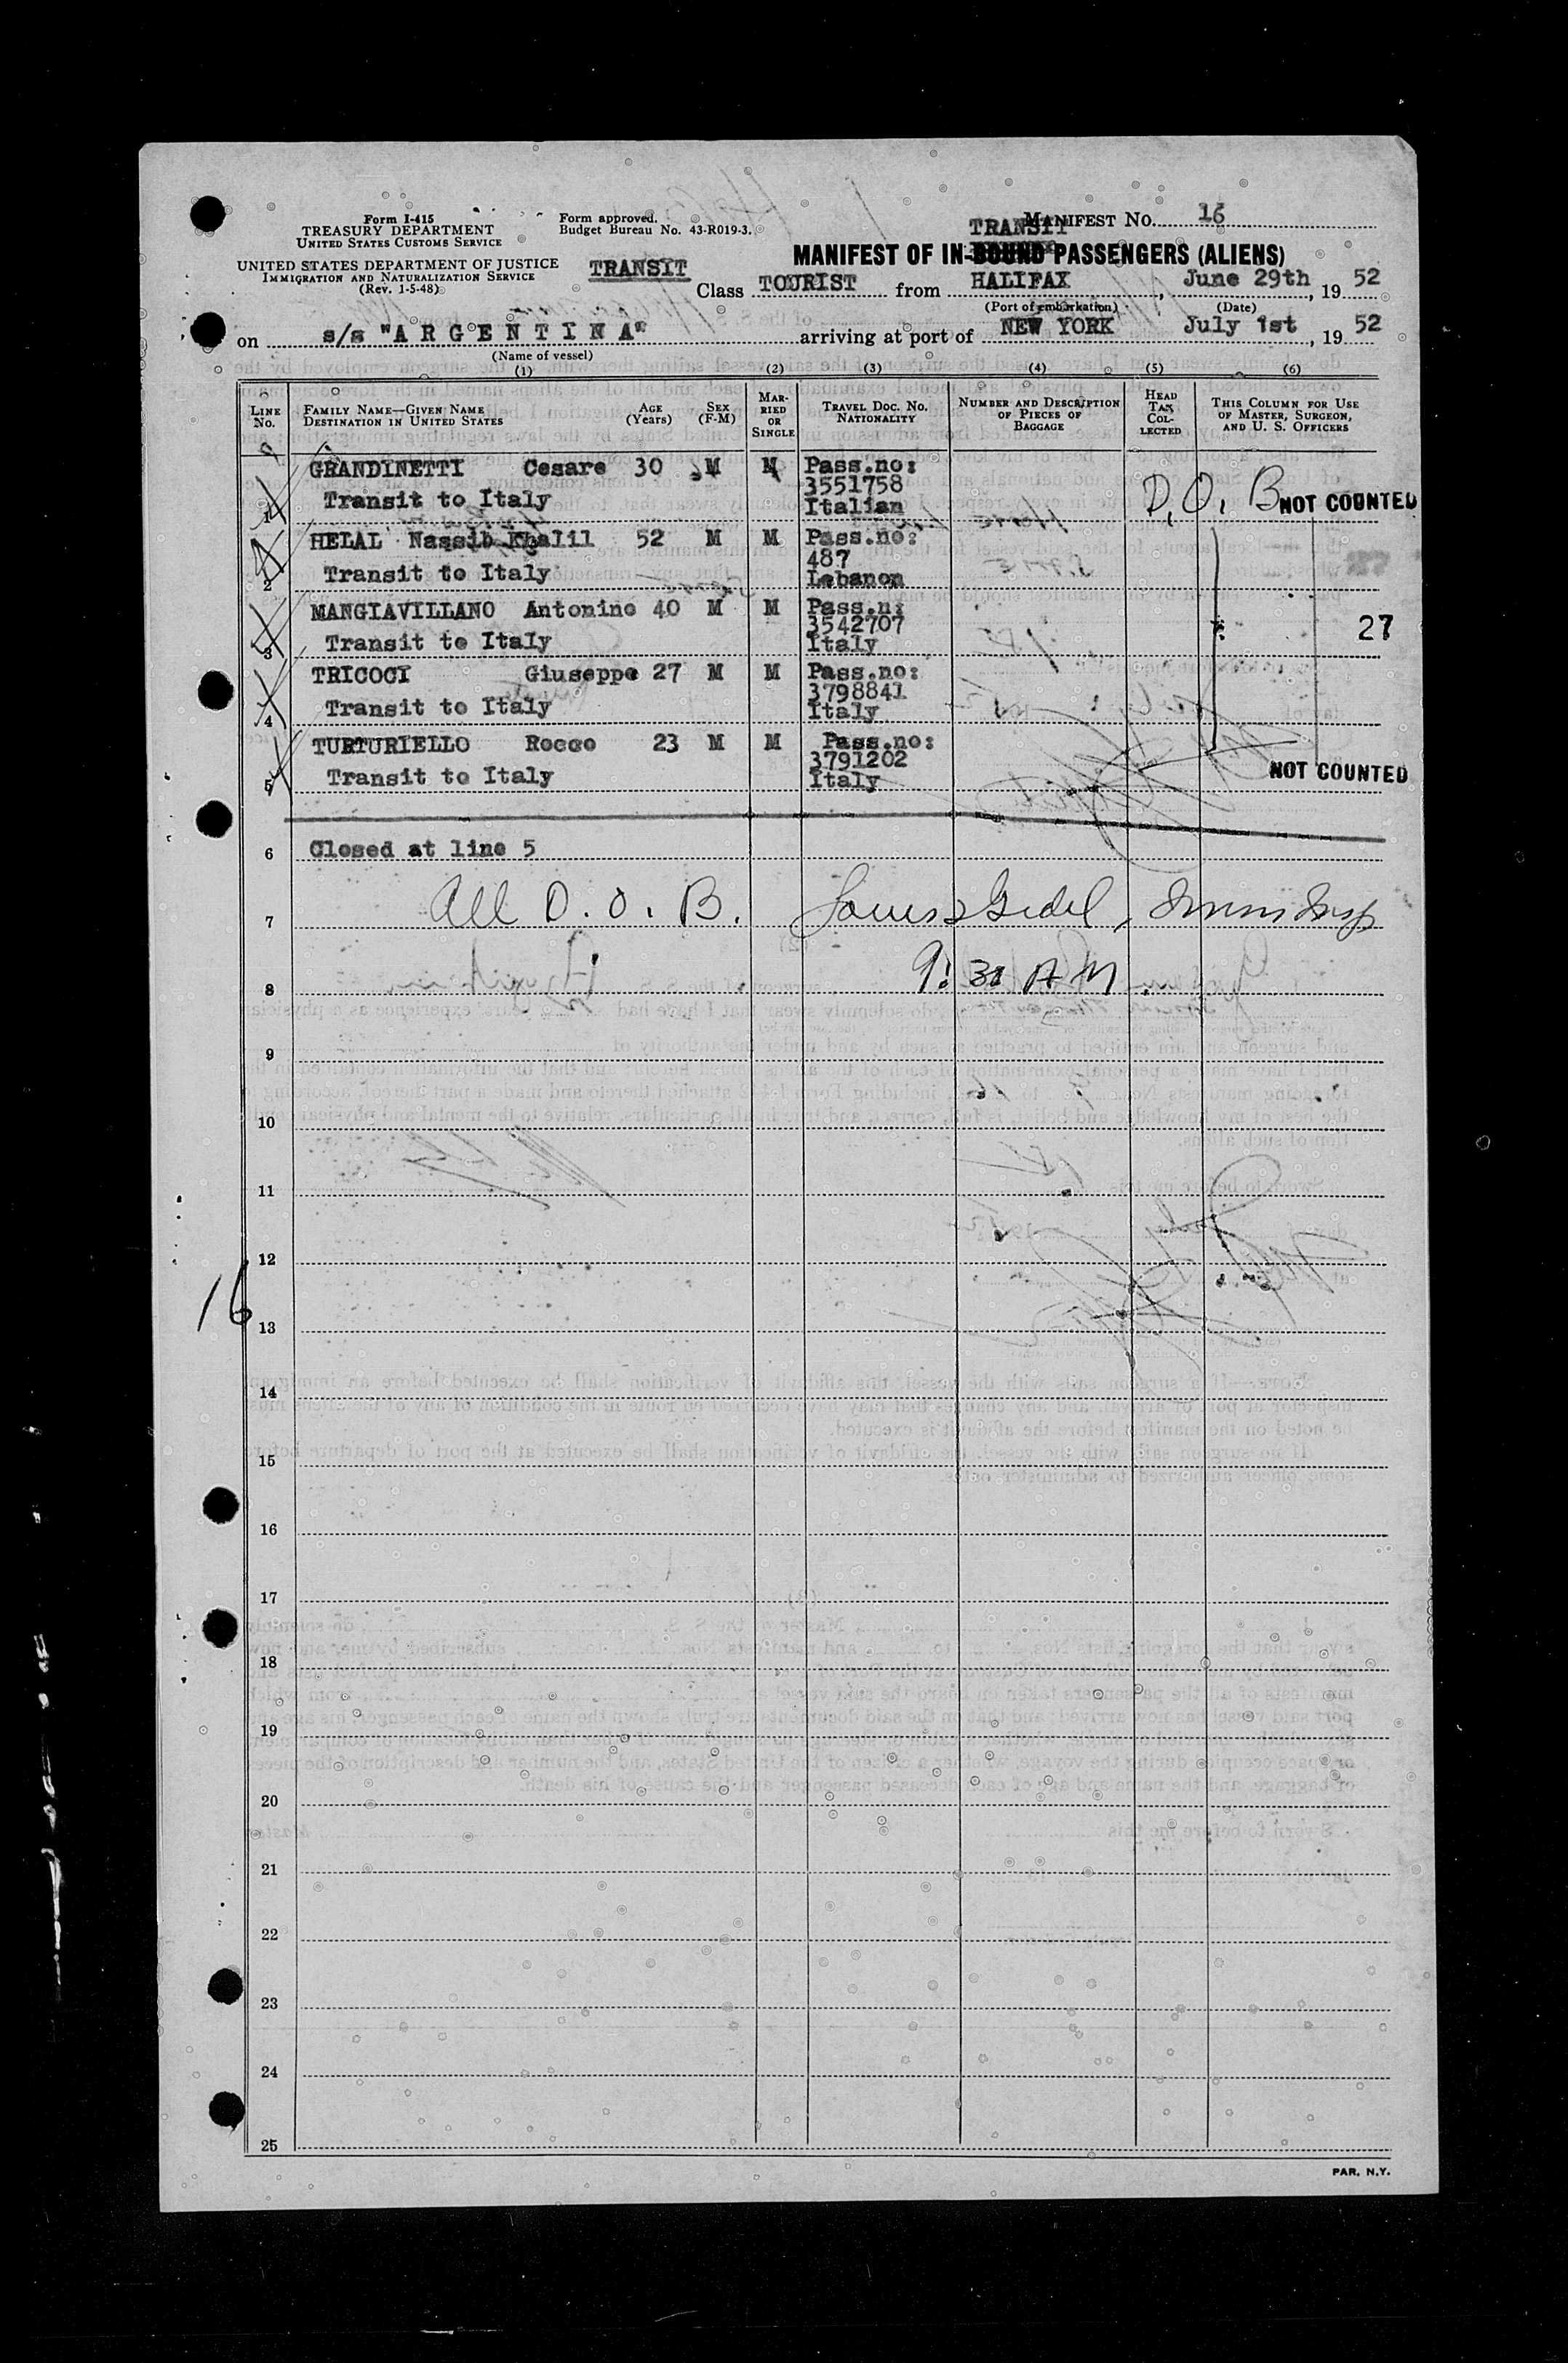 Form I-415
TREASURY DEPARTMENT
UNITED STATES CUSTOMS SERVICE
UNITED STATES DEPARTMENT OF JUSTICE
IMMIGRATION AND NATURALIZATION SERVICE
(Rev. 1-5-48)
Form approved.
Budget Bureau No. 43-R019-3.
TRANSIT
MANIFEST NO. 16
TRANSIT
MANIFEST OF IN-BOUND PASSENGERS (ALIENS)
Class TOURIST from HALIFAX, June 29th, 19 52
(Port of embarkation) (Date)
on s/s "A R G E N T I N A" arriving at port of NEW YORK July 1st, 19 52
(Name of vessel)
(1) (2) (3) (4) (5) (6)
LINE No. FAMILY NAME—GIVEN NAME DESTINATION IN UNITED STATES AGE (Years) SEX (F-M) MARRIED OR SINGLE TRAVEL DOC. NO. NATIONALITY NUMBER AND DESCRIPTION OF PIECES OF BAGGAGE HEAD TAX COLLECTED THIS COLUMN FOR USE OF MASTER, SURGEON, AND U. S. OFFICERS
GRANDINETTI Cesare 30 M M Pass.no:
3551758
1 Transit to Italy Italian D.O.B NOT COUNTED
HELAL Nassib Khalil 52 M M Pass.no:
487
2 Transit to Italy Lebanon
MANGIAVILLANO Antonino 40 M M Pass.n:
3542707 27
3 Transit to Italy Italy
TRICOCI Giuseppe 27 M M Pass.no:
3798841
4 Transit to Italy Italy
TURTURIELLO Rocco 23 M M Pass.no:
3791202
5 Transit to Italy Italy NOT COUNTED
6 Closed at line 5
7 All D.O.B.
8 9:30 AM
9
10
11
12
16
13
14
15
16
17
18
19
20
21
22
23
24
25
PAR. N.Y.